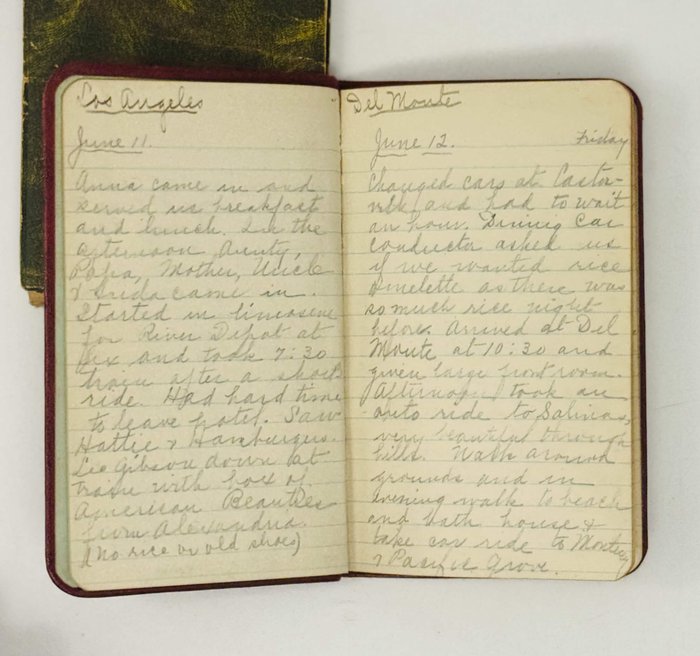 Los Angeles
June 11.
Anna came in and
served us breakfast
and lunch. In the
afternoon Aunty,
Papa, Mother, Uncle
& Frida came in.
Started in limosene
for River Depot at
six and took 7:30
train after a short
ride. Had hard time
to leave hotel. Saw
Hattie & Hamburgers.
Leo Gibson down at
train with box of
American Beauties
from Alexandria.
(No rice or old shoes)
Del Monte
June 12. Friday
Changed cars at Castro-
ville and had to wait
an hour. Dining Car
conductor asked us
if we wanted rice
omelette as there was
so much rice night
before. Arrived at Del
Monte at 10:30 and
given large front room.
Afternoon took an
auto ride to Salinas,
very beautiful through
hills. Walk around
grounds and in
evening walk to beach
and bath house &
take car ride to Monterey
& Pacific Grove.